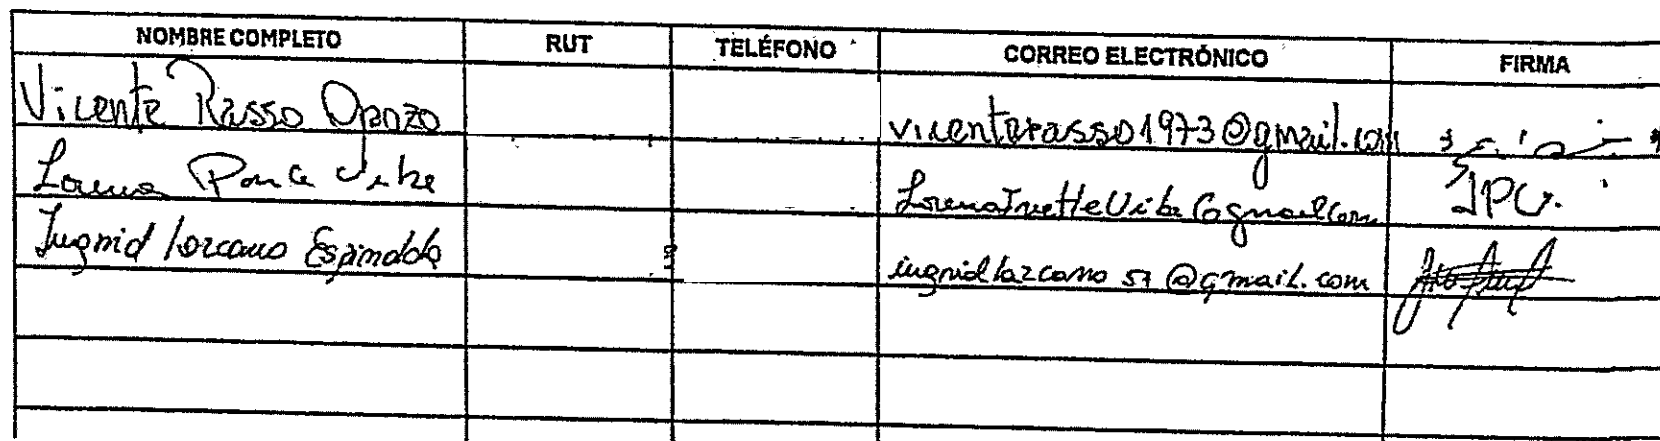 NOMBRE COMPLETO RUT TELÉFONO CORREO ELECTRÓNICO FIRMA
Vicente Rasso Opazo vicenterasso1973@gmail.com
Lorena Ponce Uribe LorenaIvetteUribe@gmail.com JPU.
Jugnid lazcano Espinddo iugnidlazcano57@gmail.com